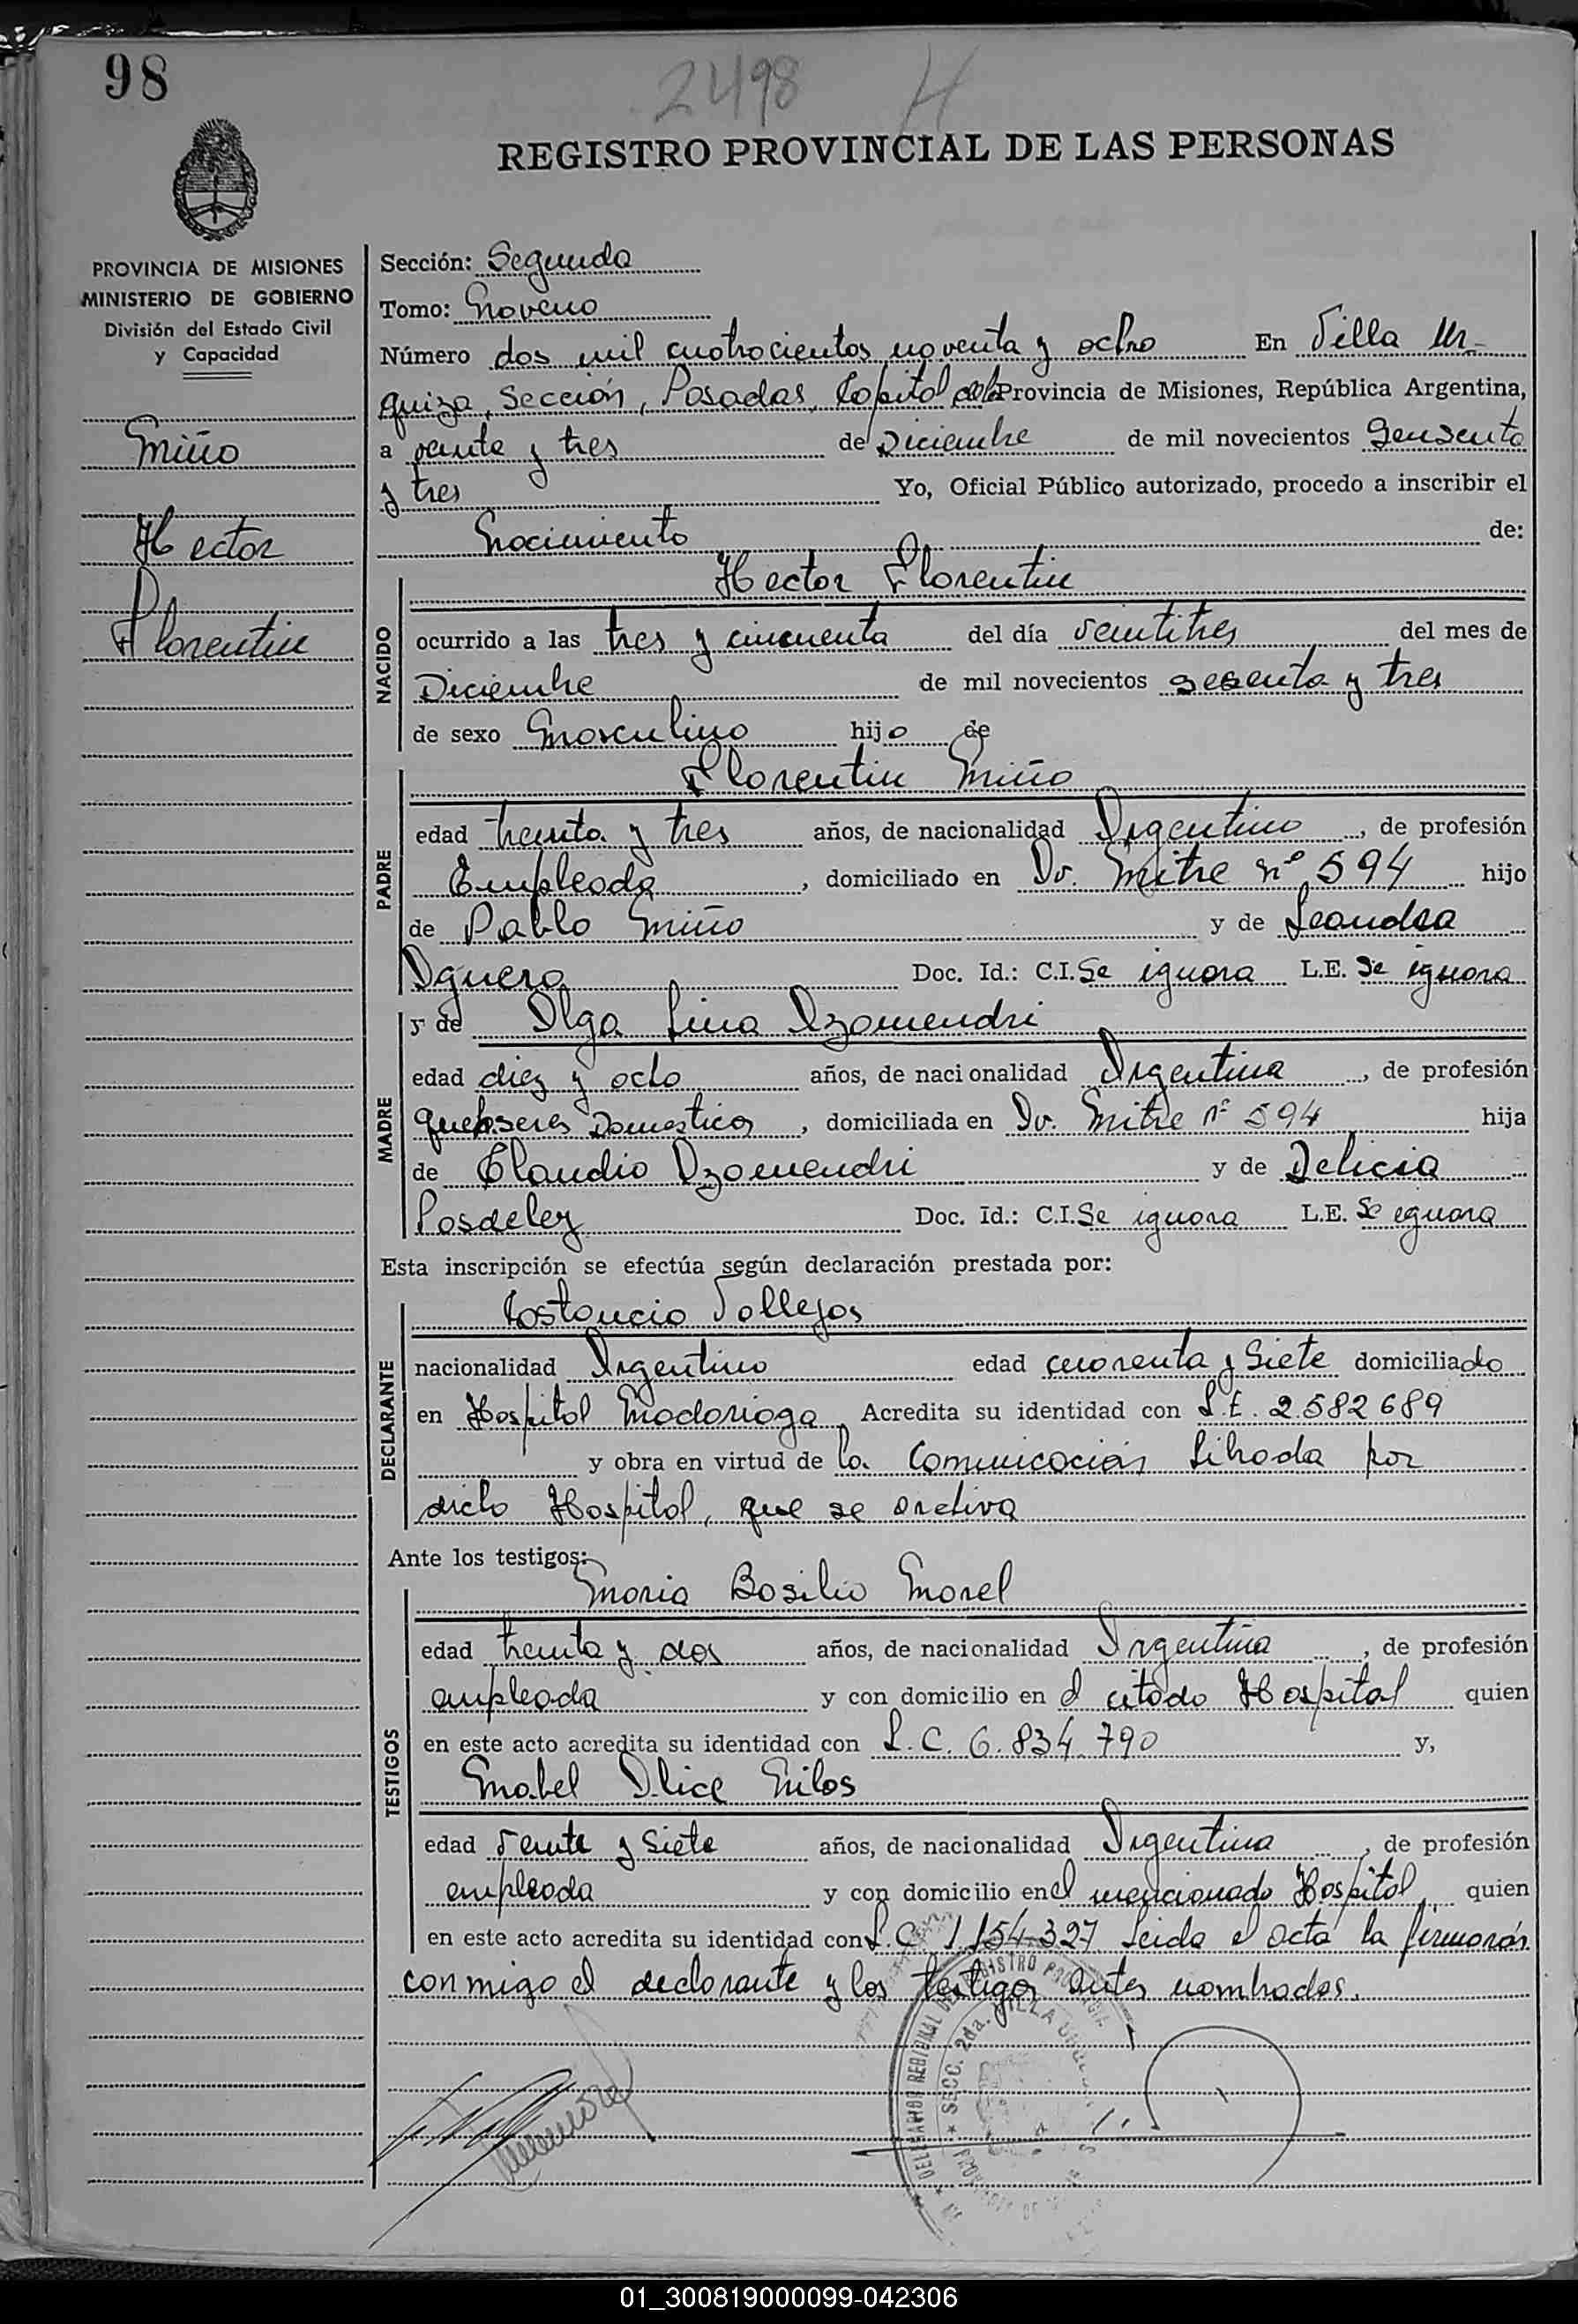 98
2498 H
REGISTRO PROVINCIAL DE LAS PERSONAS
PROVINCIA DE MISIONES
MINISTERIO DE GOBIERNO
División del Estado Civil
y Capacidad
Miño
Hector
Florentin
Sección: Segunda
Tomo: Noveno
Número dos mil cuatrocientos noventa y ocho En Villa Ur-
quiza, Sección, Posadas, Capital de la Provincia de Misiones, República Argentina,
a veinte y tres de Diciembre de mil novecientos sensenta
y tres Yo, Oficial Público autorizado, procedo a inscribir el
Nacimiento de:
NACIDO
Hector Florentin
ocurrido a las tres y cincuenta del día veintitres del mes de
Diciembre de mil novecientos sesenta y tres
de sexo Masculino hijo de
PADRE
Florentin Miño
edad treinta y tres años, de nacionalidad Argentino, de profesión
Empleado, domiciliado en Av. Mitre nº 594 hijo
de Pablo Miño y de Leandra
Aguero Doc. Id.: C.I. Se ignora L.E. Se ignora
MADRE
y de Olga Lina Azomendri
edad diez y ocho años, de nacionalidad Argentina, de profesión
quehseres Domesticos, domiciliada en Av. Mitre nº 594 hija
de Claudio Azomendri y de Delicia
Posdeley Doc. Id.: C.I. Se ignora L.E. Se ignora
Esta inscripción se efectúa según declaración prestada por:
DECLARANTE
Costancio Vallejos
nacionalidad Argentino edad cuarenta y siete domiciliado
en Hospital Madariaga, Acredita su identidad con L.E. 2.582689
y obra en virtud de la Comunicación librada por
dicho Hospital, que se archiva
Ante los testigos:
TESTIGOS
Maria Basilia Morel
edad treinta y dos años, de nacionalidad Argentina, de profesión
empleada y con domicilio en el citado Hospital quien
en este acto acredita su identidad con L.C. 6.834.790 y,
Mabel Alice
edad veinte y siete años, de nacionalidad Argentina, de profesión
empleada y con domicilio en el mencionado Hospital, quien
en este acto acredita su identidad con L.C. 1.154.327 Leida el acta la firmarán
conmigo el declarante y los testigos antes nombrados.
SECC. 2da.
01_300819000099-042306